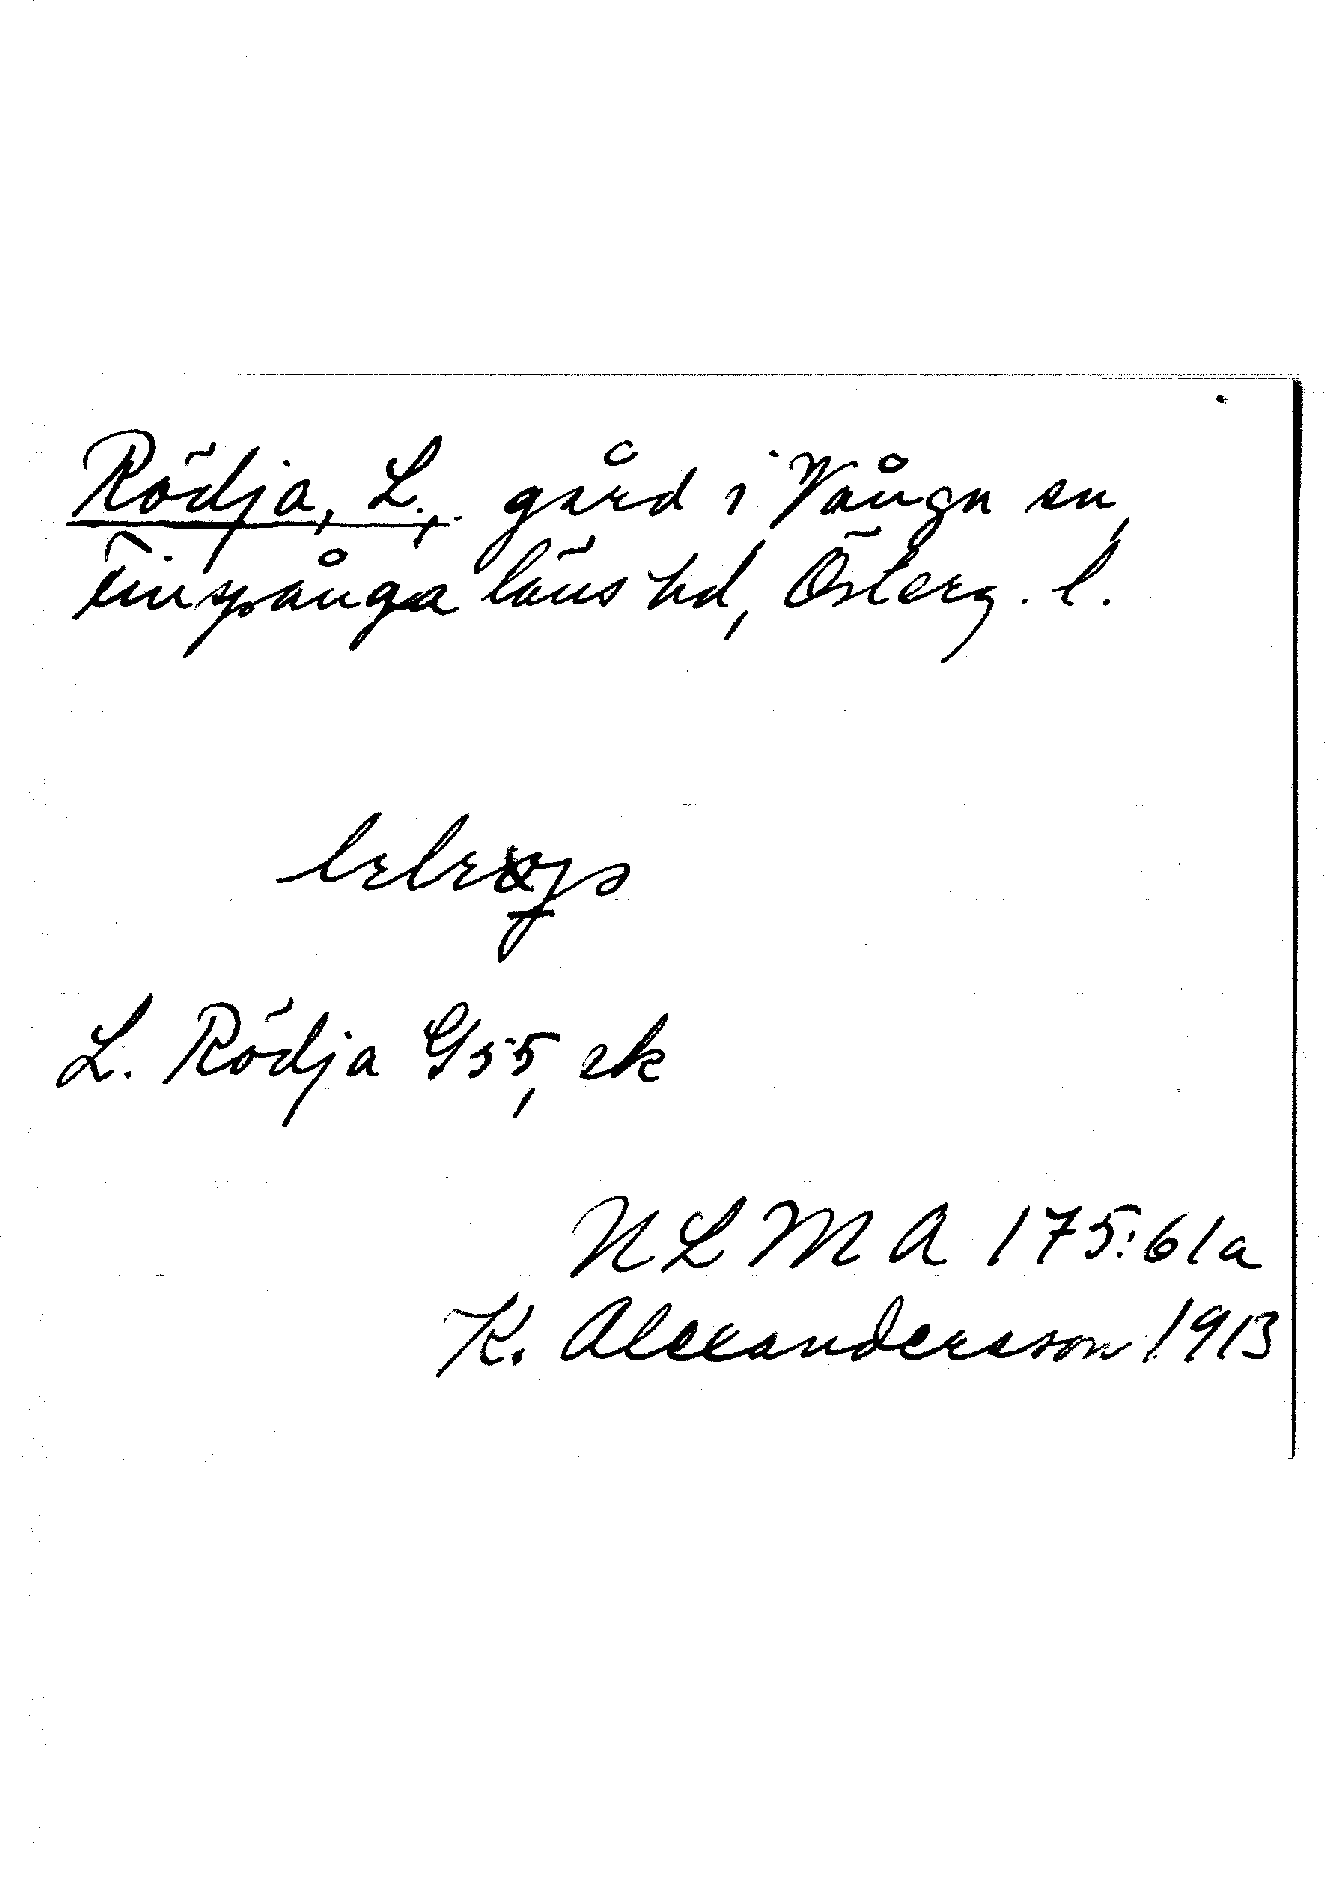 Rödja, L., gård i Vånga sn,
Finspånga läns hd, Österg. l.
L. Rödja G 55, ek
NLMA 175:61a
K. Alexandersson 1913